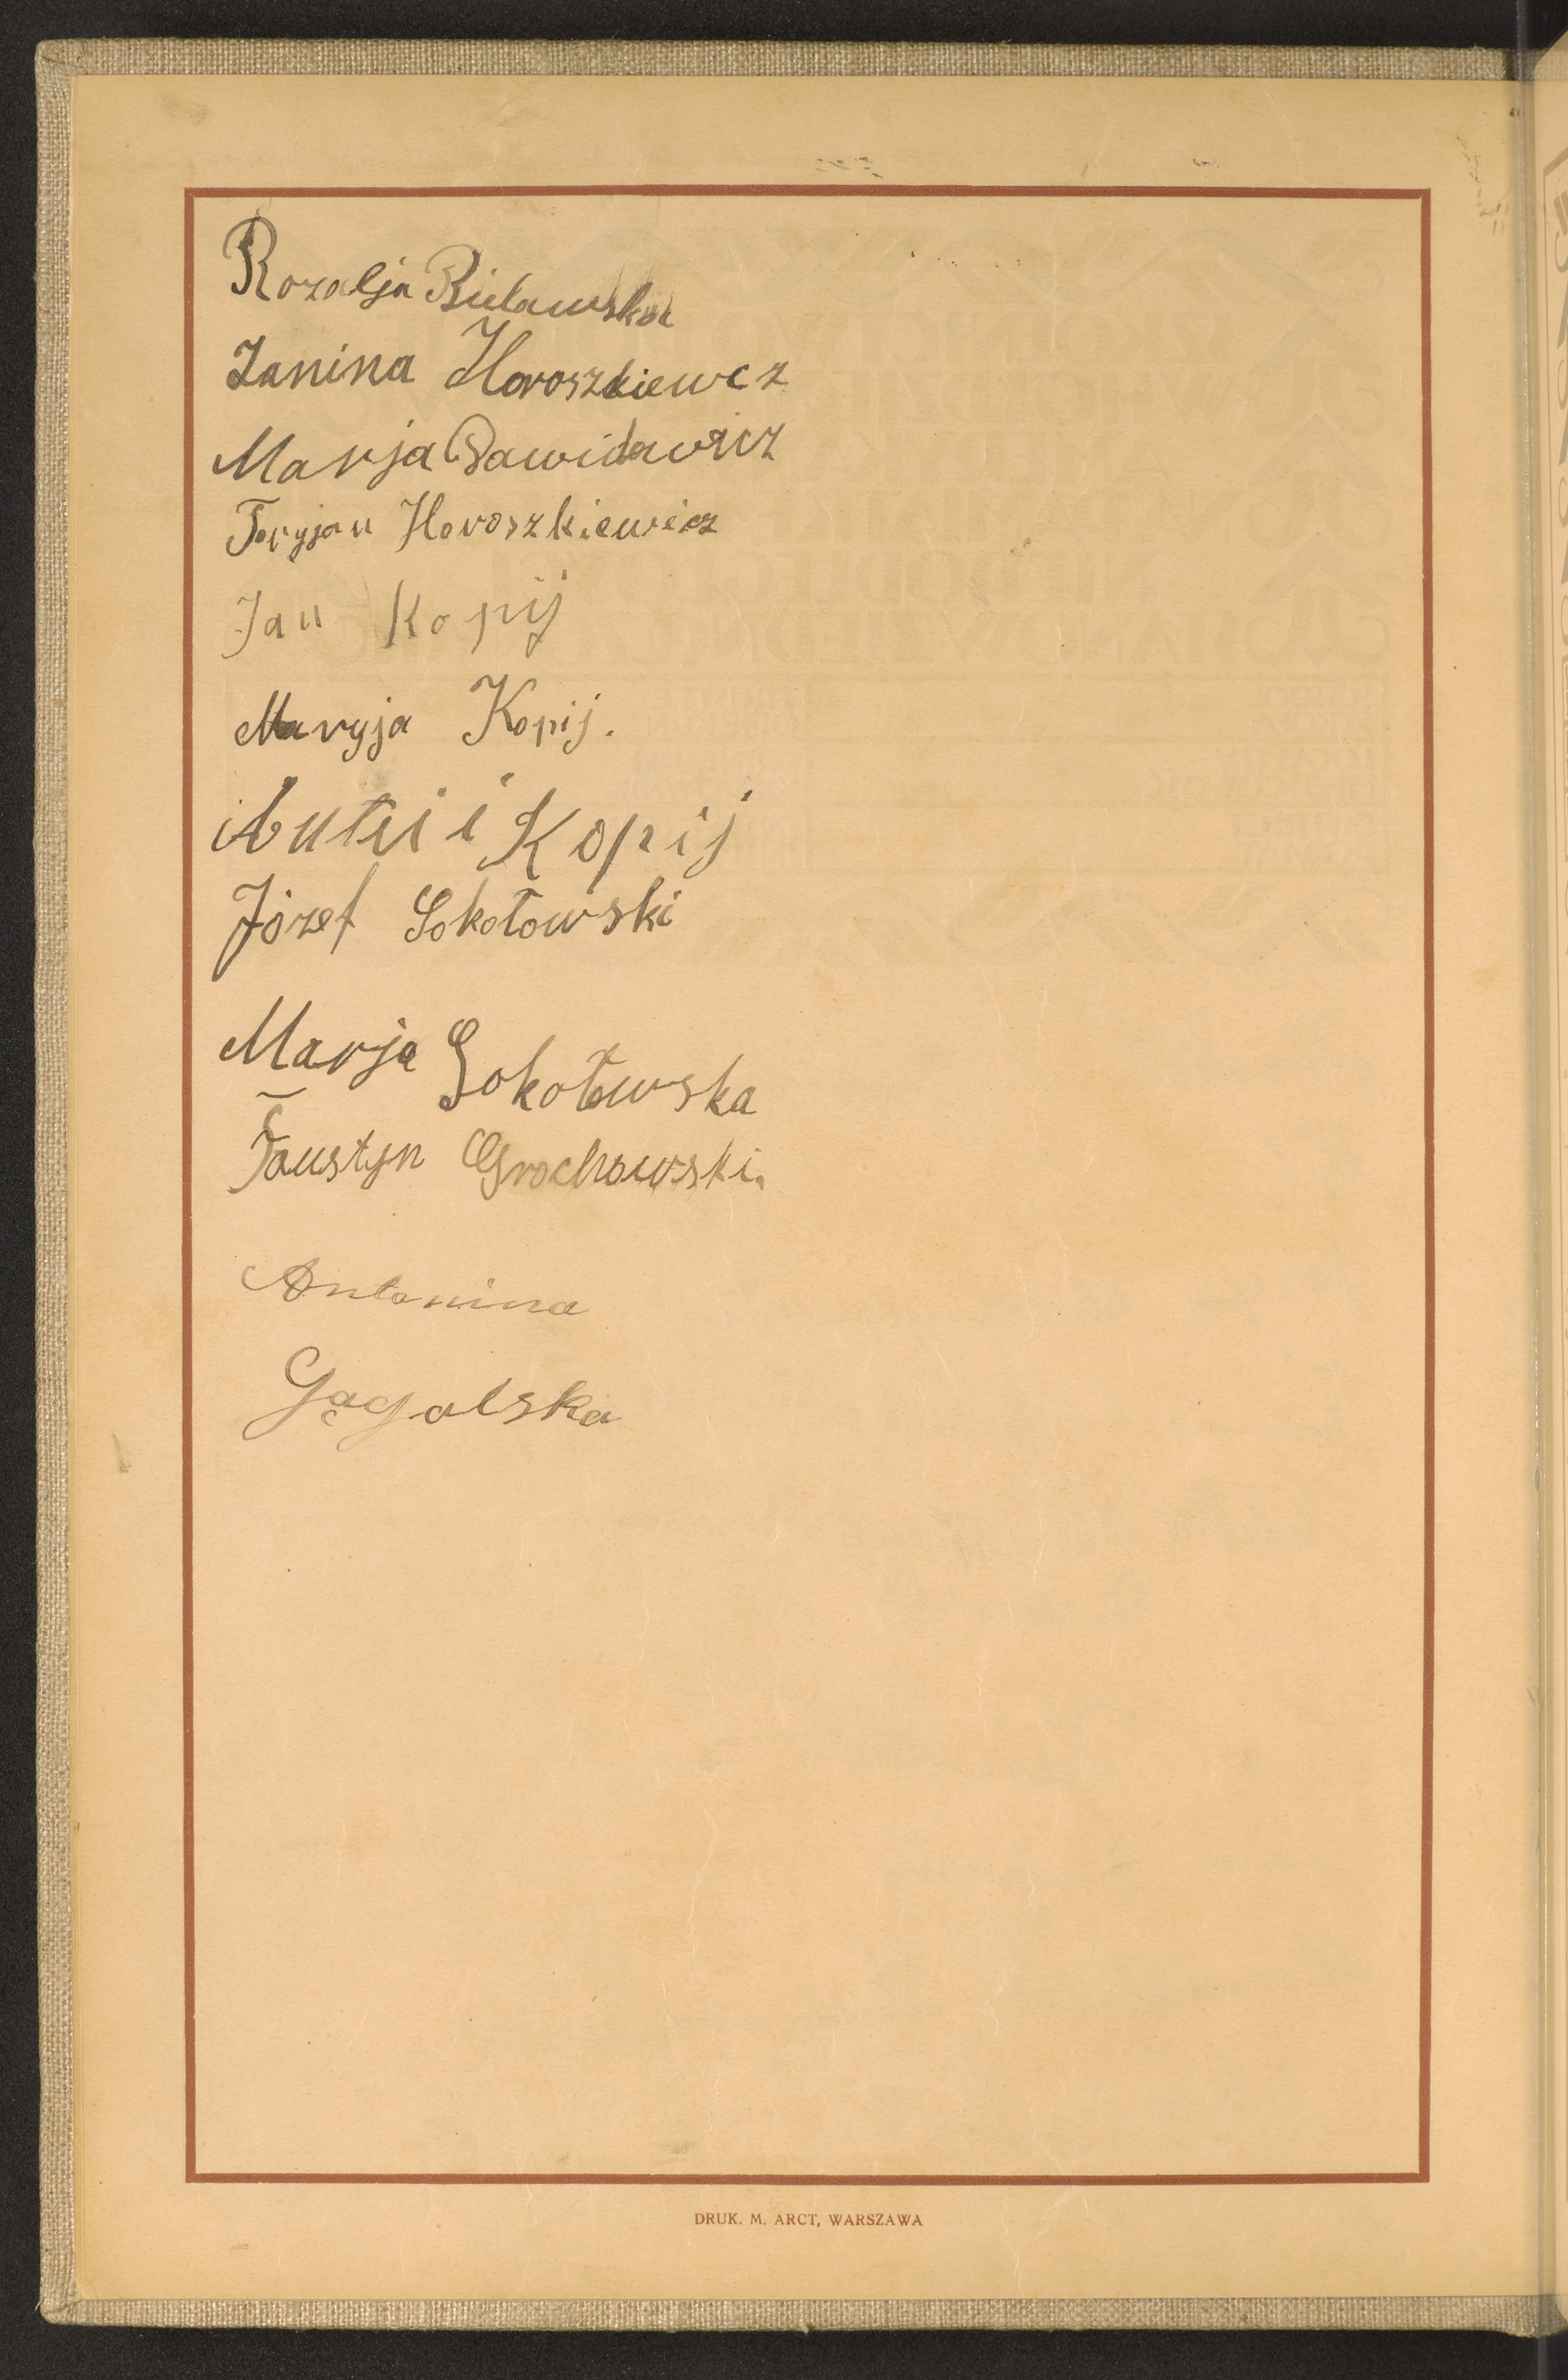 Rozalja Bielawska
Janina Horoszkiewcz
Marja Dawidowicz
Horoszkiewicz
Jan Kopij
Maryja Kopij.
Kopij
Józef Sokołowski
Marja Sokołowska
Faustyn Grochowski.
Antonina
Gągalska
DRUK. M. ARCT, WARSZAWA